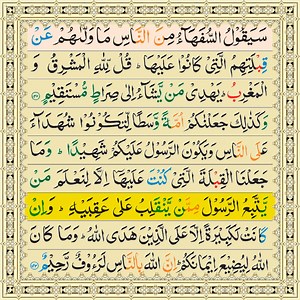 سَيَقُوْلُ السُّفَهَآءُ مِنَ النَّاسِ مَا وَلّٰىهُمْ عَنْ
قِبْلَتِهِمُ الَّتِيْ كَانُوْا عَلَيْهَا ؕ قُلْ لِّلّٰهِ الْمَشْرِقُ وَ
الْمَغْرِبُ ؕ يَهْدِيْ مَنْ يَّشَآءُ اِلٰى صِرَاطٍ مُّسْتَقِيْمٍ
وَكَذٰلِكَ جَعَلْنٰكُمْ اُمَّةً وَّسَطًا لِّتَكُوْنُوْا شُهَدَآءَ
عَلَى النَّاسِ وَيَكُوْنَ الرَّسُوْلُ عَلَيْكُمْ شَهِيْدًا ؕ وَمَا
جَعَلْنَا الْقِبْلَةَ الَّتِيْ كُنْتَ عَلَيْهَاۤ اِلَّا لِنَعْلَمَ مَنْ
يَّتَّبِعُ الرَّسُوْلَ مِمَّنْ يَّنْقَلِبُ عَلٰى عَقِبَيْهِ ؕ وَاِنْ
كَانَتْ لَكَبِيْرَةً اِلَّا عَلَى الَّذِيْنَ هَدَى اللّٰهُ ؕ وَمَا كَانَ
اللّٰهُ لِيُضِيْعَ اِيْمَانَكُمْ ؕ اِنَّ اللّٰهَ بِالنَّاسِ لَرَءُوْفٌ رَّحِيْمٌ